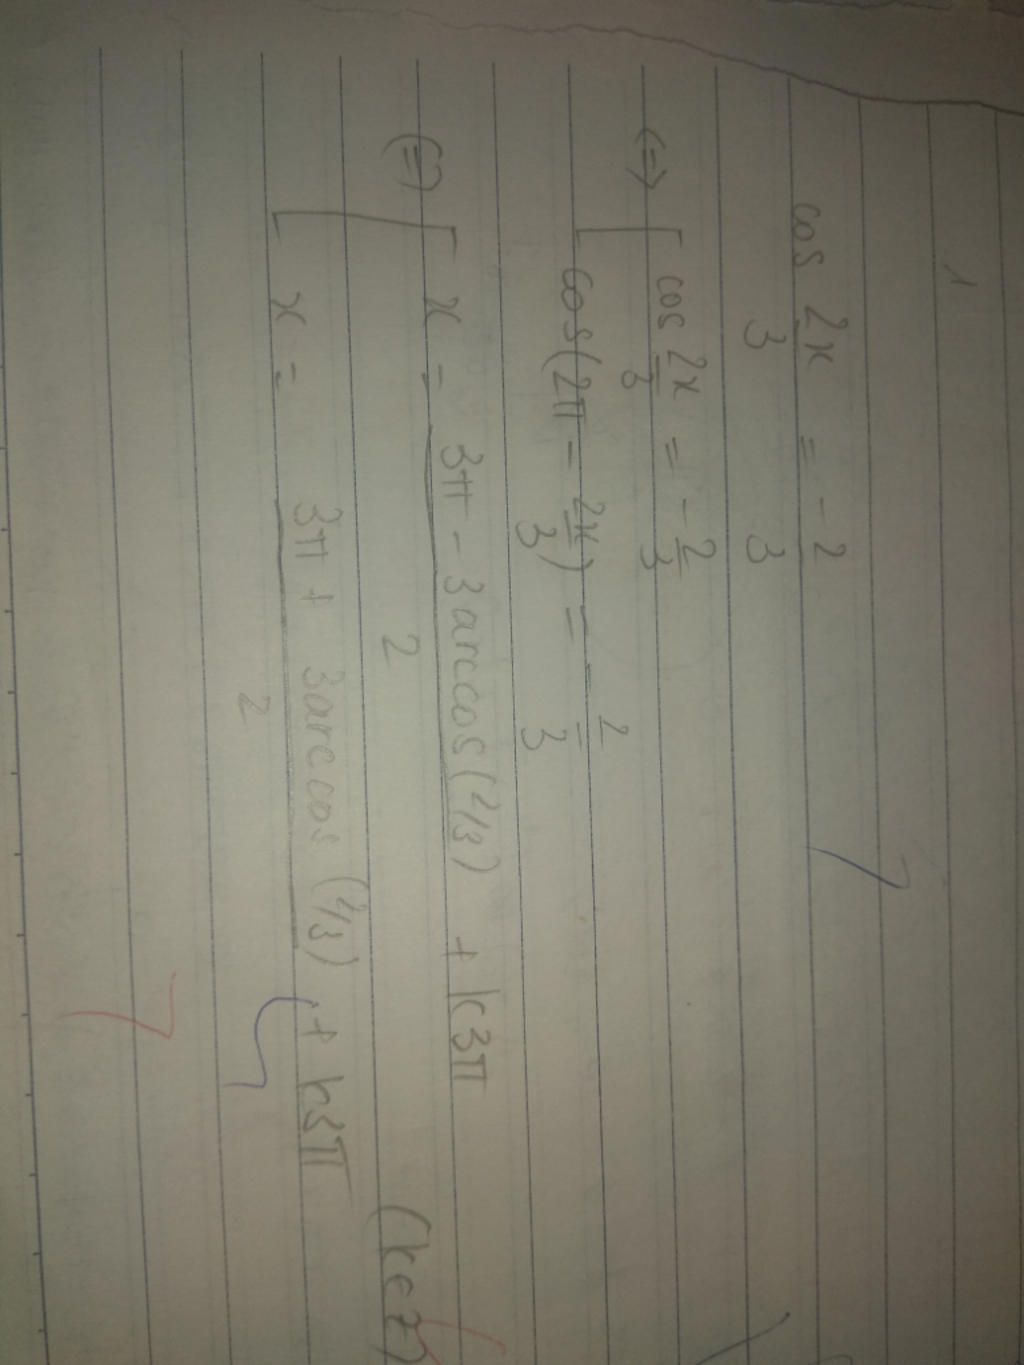 1
cos 2x/3 = -2/3
<=> [ cos 2x/3 = -2/3
cos(2π - 2x/3) = -2/3
<=> [ x = (3π - 3arccos(2/3))/2 + k3π
x = (3π + 3arccos(2/3))/2 + k3π (k∈Z)